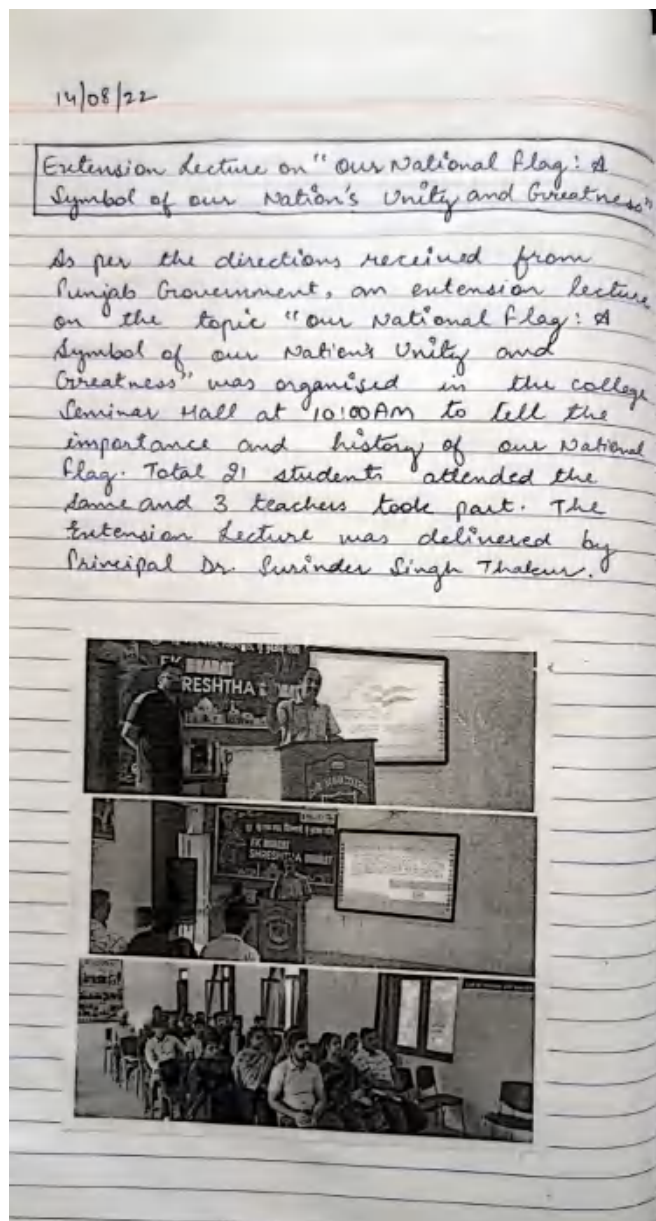 14/08/22
Extension Lecture on "Our National Flag: A
Symbol of our Nation's Unity and Greatness"
As per the directions received from
Punjab Government, an extension lecture
on the topic "Our National Flag: A
Symbol of our Nation's Unity and
Greatness" was organised in the college
Seminar Hall at 10:00AM to tell the
importance and history of our National
Flag. Total 21 students attended the
same and 3 teachers took part. The
Extension Lecture was delivered by
Principal Dr. Surinder Singh Thakur.
EK BHARAT
RESHTHA
EK BHARAT
SHRESHTHA BHARAT